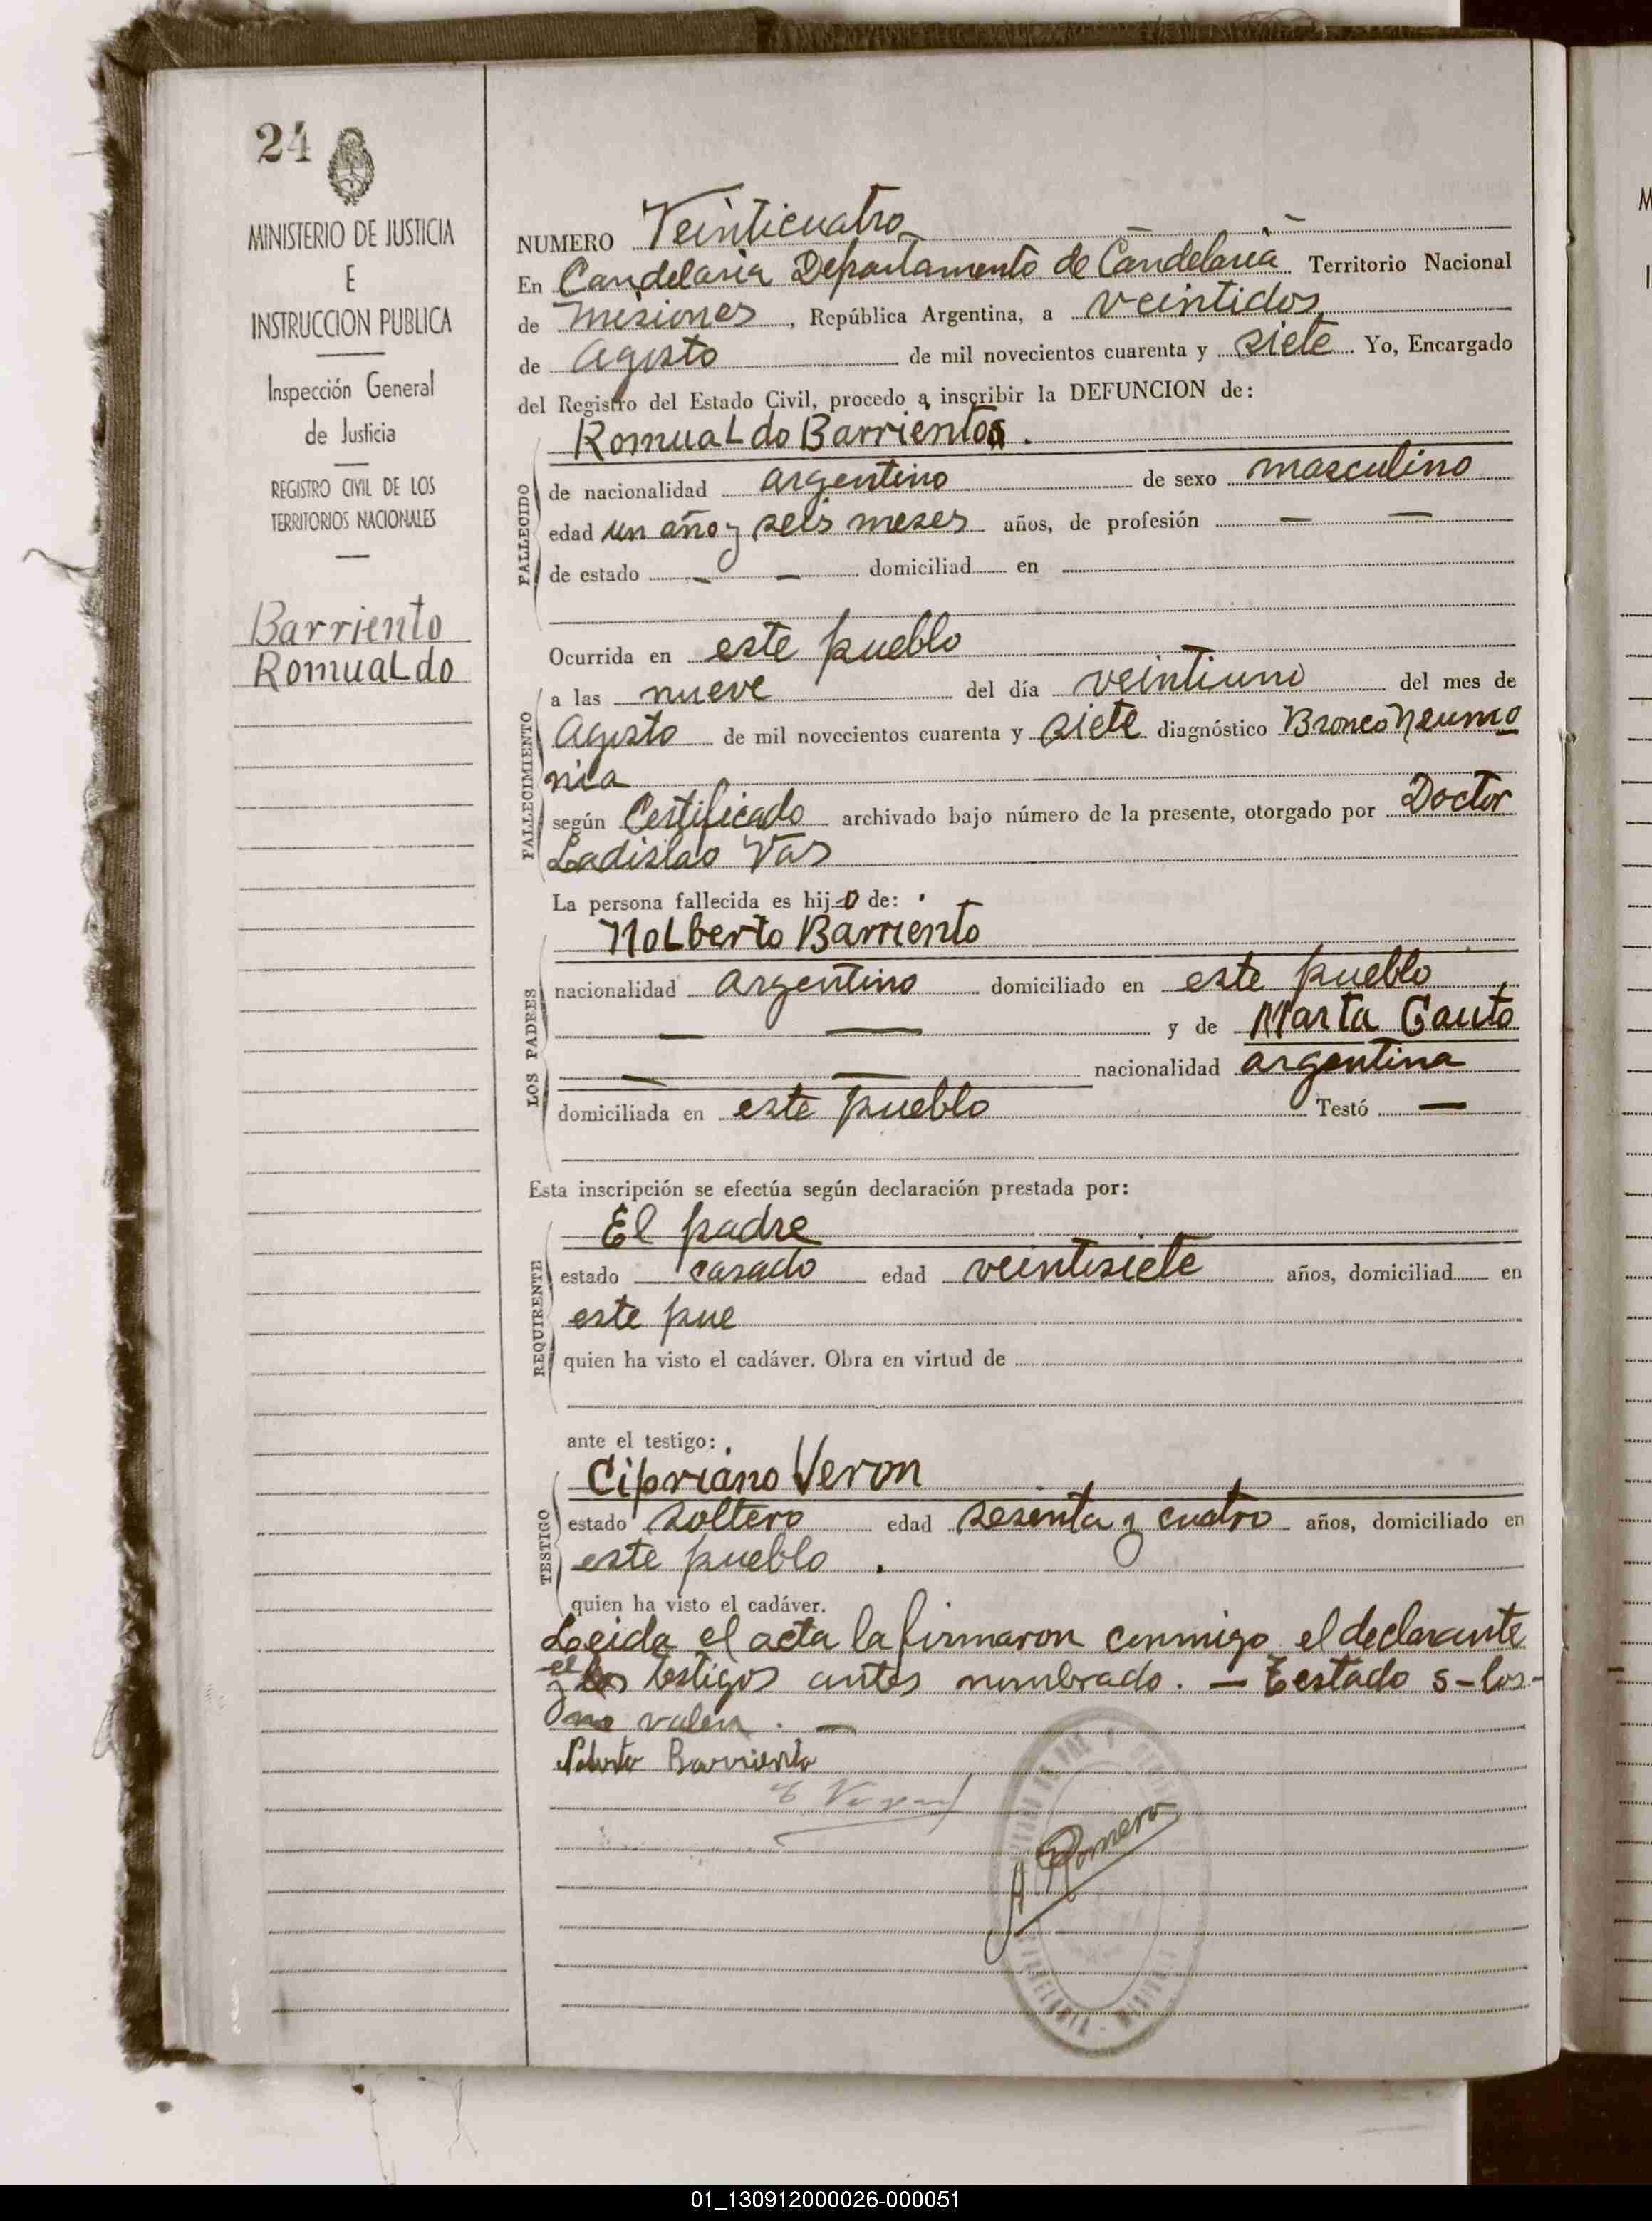 24
MINISTERIO DE JUSTICIA
E
INSTRUCCION PUBLICA
Inspección General
de Justicia
REGISTRO CIVIL DE LOS
TERRITORIOS NACIONALES
Barriento
Romualdo
NUMERO Veinticuatro
En Candelaria Departamento de Candelaria Territorio Nacional
de Misiones, República Argentina, a veintidos
de Agosto de mil novecientos cuarenta y siete. Yo, Encargado
del Registro del Estado Civil, procedo a inscribir la DEFUNCION de:
Romualdo Barrientos.
FALLECIDO
de nacionalidad argentino de sexo masculino
edad un año y seis meses años, de profesión — —
de estado — — domiciliad en
Ocurrida en este pueblo
FALLECIMIENTO
a las nueve del día veintiuno del mes de
Agosto de mil novecientos cuarenta y siete diagnóstico Bronconeumo
nia
según Certificado archivado bajo número de la presente, otorgado por Doctor
Ladislao Vas
La persona fallecida es hijo de:
Nolberto Barriento
LOS PADRES
nacionalidad argentino domiciliado en este pueblo
— — y de Marta Gauto
— — nacionalidad argentina
domiciliada en este pueblo Testó —
Esta inscripción se efectúa según declaración prestada por:
El padre
REQUIRENTE
estado casado edad veintisiete años, domiciliad en
este pue
quien ha visto el cadáver. Obra en virtud de
ante el testigo:
Cipriano Veron
TESTIGO
estado soltero edad sesenta y cuatro años, domiciliado en
este pueblo.
quien ha visto el cadáver.
Leida el acta la firmaron conmigo el declarante
el
y los testigos antes nombrado. — Testado s-los-
no valen. —
Barriento
A Romero
01_130912000026-000051